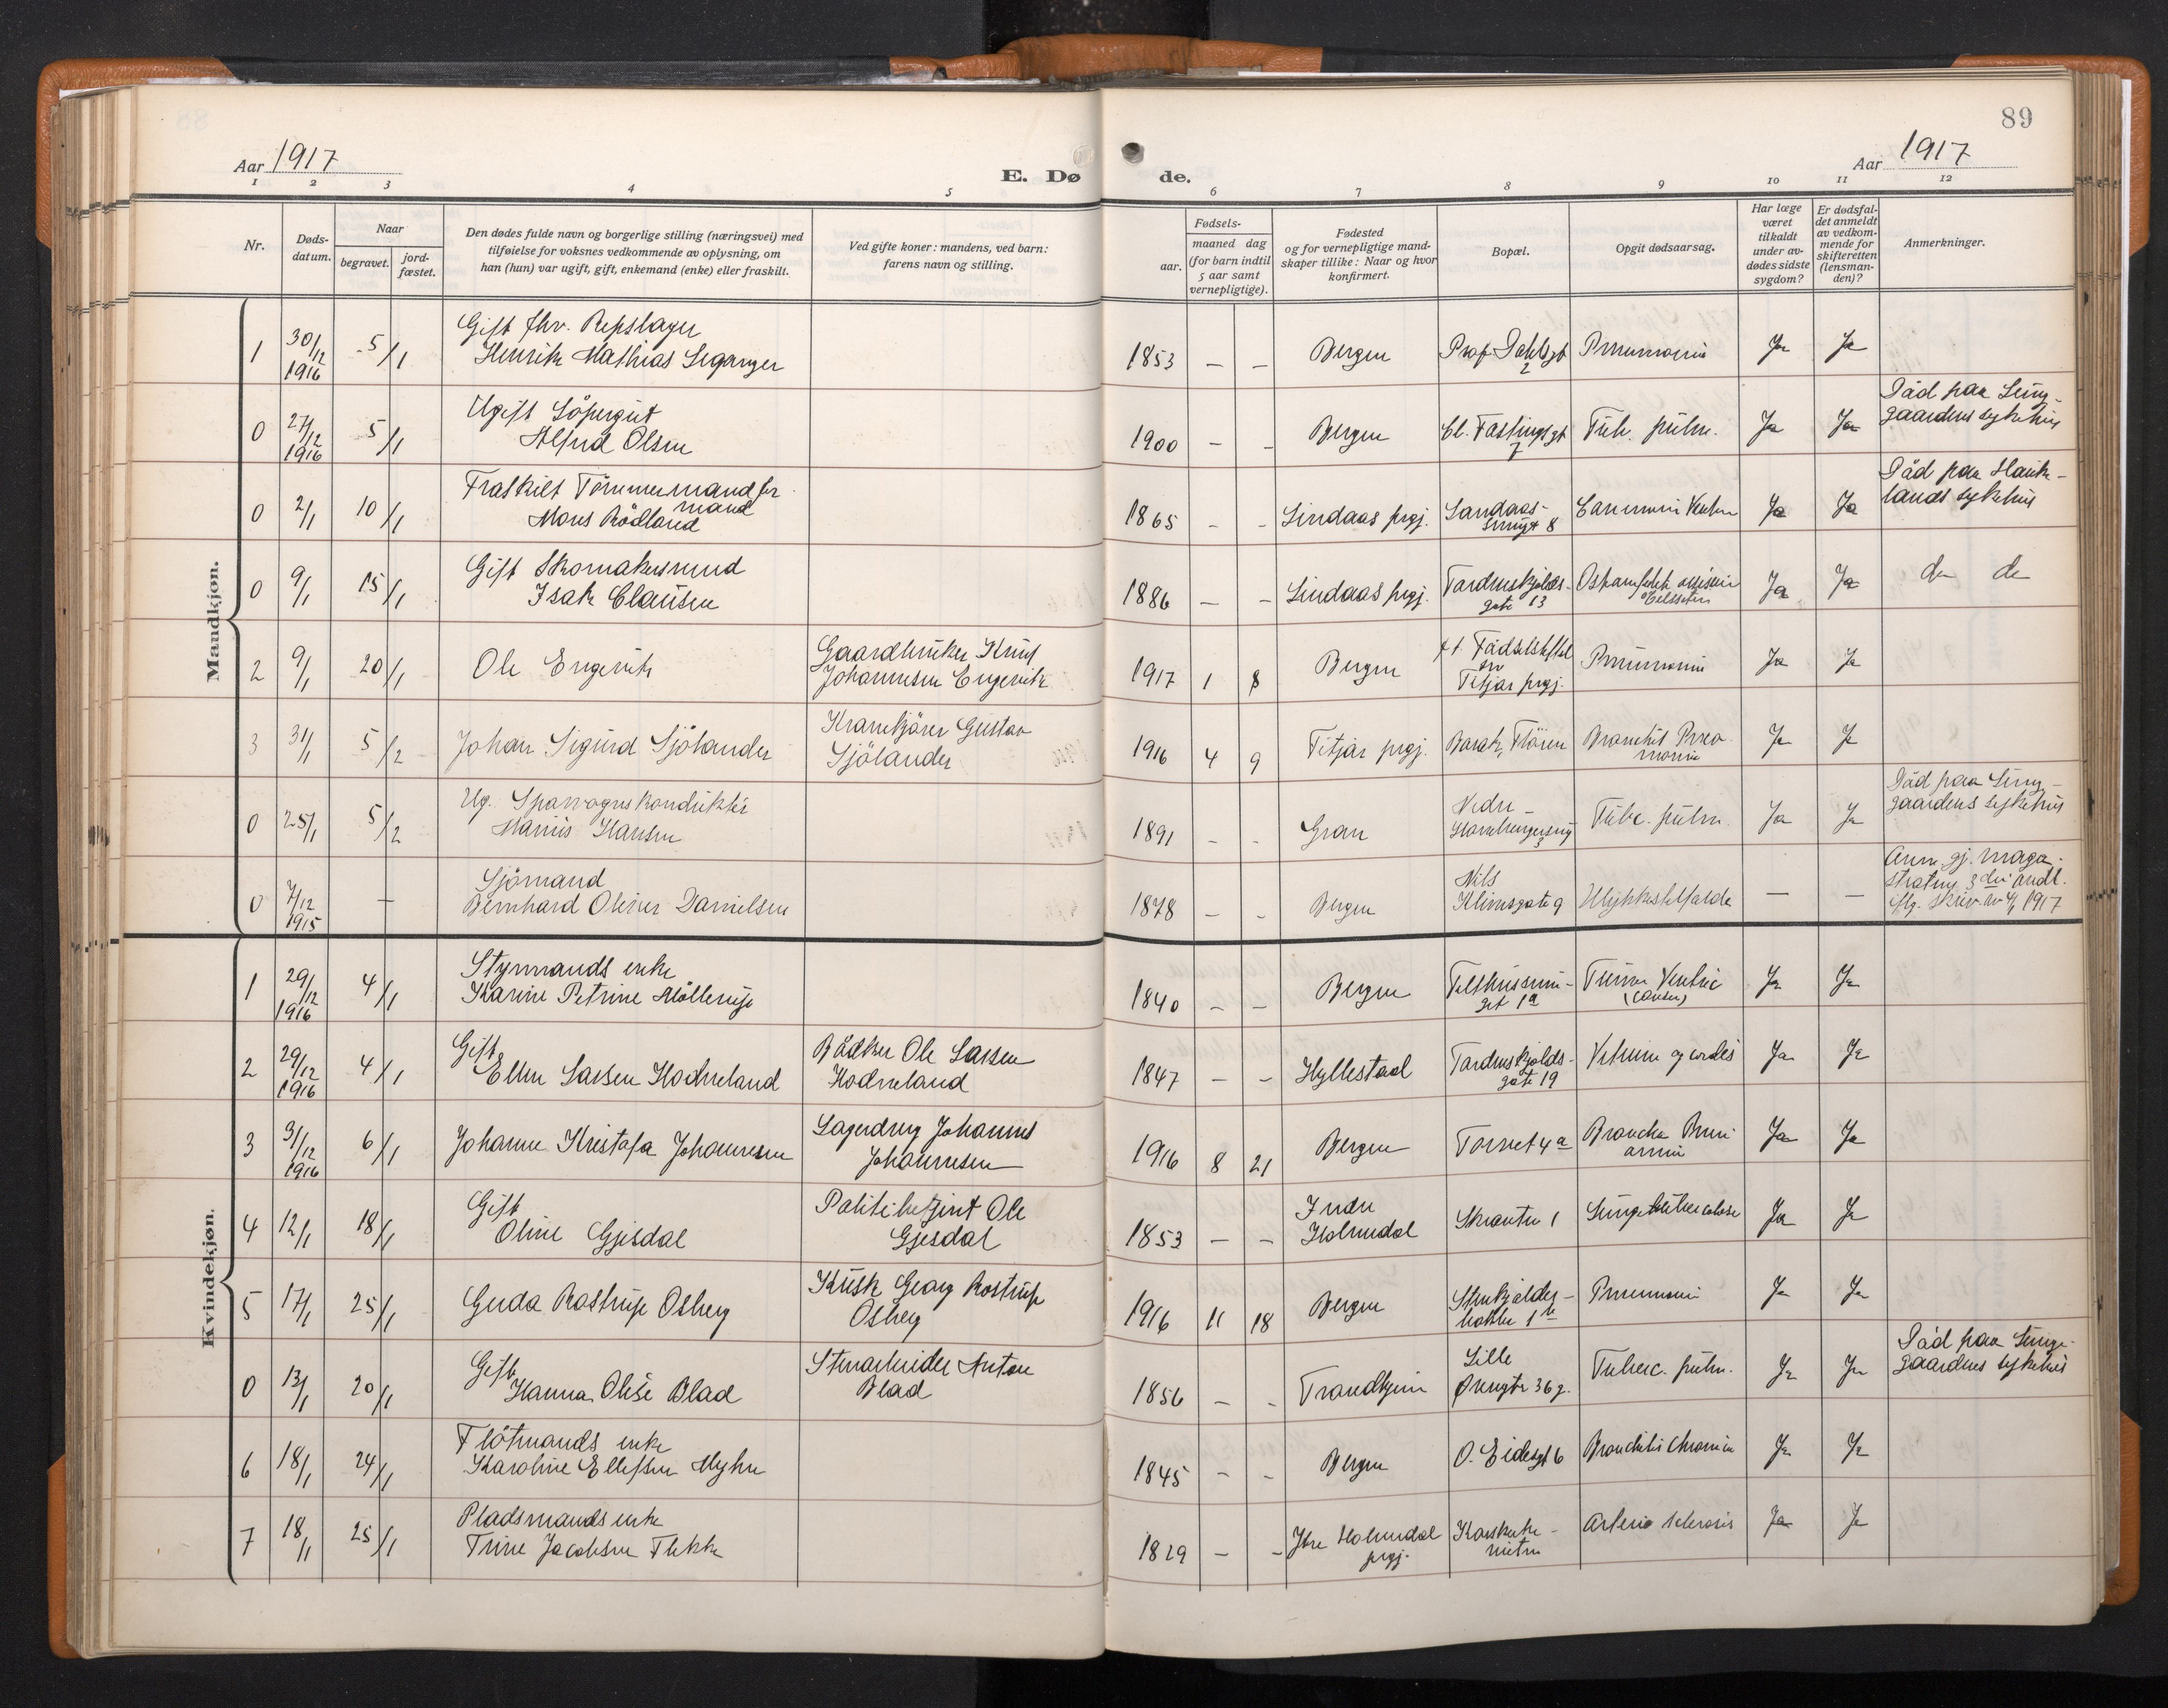 89
Aar 1917
E. Dø
de.
Aar 1917
1 2 3 4 5 6 7 8 9 10 11 12
Nr.
Døds-
datum.
Naar
begravet.
jord-
fæstet.
Den dødes fulde navn og borgerlige stilling (næringsvei) med
tilføielse for voksnes vedkommende av oplysning, om
han (hun) var ugift, gift, enkemand (enke) eller fraskilt.
Ved gifte koner: mandens, ved barn:
farens navn og stilling.
Fødsels-
aar.
maaned dag
(for barn indtil
5 aar samt
vernepligtige).
Fødested
og for vernepligtige mand-
skaper tillike: Naar og hvor
konfirmert.
Bopæl.
Opgit dødsaarsag.
Har læge
været
tilkaldt
under av-
dødes sidste
sygdom?
Er dødsfal-
det anmeldt
av vedkom-
mende for
skifteretten
(lensman-
den)?
Anmerkninger.
Mandkjøn.
1 30/12 1916 5/1 Gift fhv. Repslager
Henrik Mathias Leganger 1853 — — Bergen Prof Dahlsgt 2 Pneumonia Ja Ja
0 27/12 1916 5/1 Ugift Löpergut
Alfred Olsen 1900 - - Bergen Cl. Fastingsgt 7 Tub. pulm. Ja Ja Död paa Lung-
gaardens sykehus
0 2/1 10/1 Fraskilt Tömmermand for
mand
Mons Rödland 1865 - - Lindaas prgj. Landaas-
smugt 8 Ja Ja Död paa Hauk-
lands sykehus
0 9/1 15/1 Gift Skomakersvend
Isak Clausen 1886 — - Lindaas prgj. Tordenskjolds-
gate 13 Ja Ja do do
2 9/1 20/1 Ole Engevik Gaardbruker Knut
Johannesen Engevik 1917 1 8 Bergen Födselsstiftel
sen
Fitjar prgj. Pneumonia Ja Ja
3 31/1 5/2 Johan Sigurd Sjölander Krankjörer Gustav
Sjölander 1916 4 9 Fitjar prgj. Barak, Flöien Bronchit Pneu
monia Ja Ja
0 25/1 5/2 Ug. Sporvognskonduktör
Marius Hansen 1891 - - Gran Nedre
3 Tubc. pulm. Ja Ja Död paa Lung-
gaardens sykehus
0 7/12 1915 — Sjömand
Bernhard Oliver Danielsen 1878 - - Bergen Nils
Klimsgate 9 Ulykkestilfælde — — Anm. gj. magi-
straten 3die avdl.
iflg. skriv. av 4/1 1917
Kvindekjøn.
1 29/12 1916 4/1 Styrmands enke
Karine Petrine Möllerup 1840 - - Bergen Telthussmu-
get 1a Tumor Ventric
(cancer) Ja Ja
2 29/12 1916 4/1 Gift
Ellen Larsen Hodneland Bödker Ole Larsen
Hodneland 1847 - - Hyllestad Tordenskjolds-
gate 19 Vitium cordis Ja Ja
3 31/12 1916 6/1 Johanne Kristofa Johannesen Lagerdreng Johannes
Johannesen 1916 8 21 Bergen Torvet 4a Broncho Pneu
monia Ja Ja
4 12/1 18/1 Gift
Oline Gjesdal Politibetjent Ole
Gjesdal 1853 — - Indre
Holmedal Skanten 1 Lungetuberculose Ja Ja
5 17/1 25/1 Gerda Rostrup Osberg Kusk Georg Rostrup
Osberg 1916 11 18 Bergen Stenkjelder-
bakken 1b Pneumoni Ja Ja
0 13/1 20/1 Gift
Hanna Olise Blad Stenarbeider Anton
Blad 1856 - - Trondhjem Lille
Øvregt 36 g. Tuberc. pulm. Ja Ja Död paa Lunge-
gaardens sykehus
6 18/1 24/1 Flötmands enke
Karoline Ellefsen Myhre 1845 - - Bergen O. Eidesgt 6 Bronchitis chronica Ja Ja
7 18/1 25/1 Pladsmands enke
Trine Jacobsen Flekke 1829 — - Ytre Holmedal
prgj. Arterio sclerosis Ja Ja